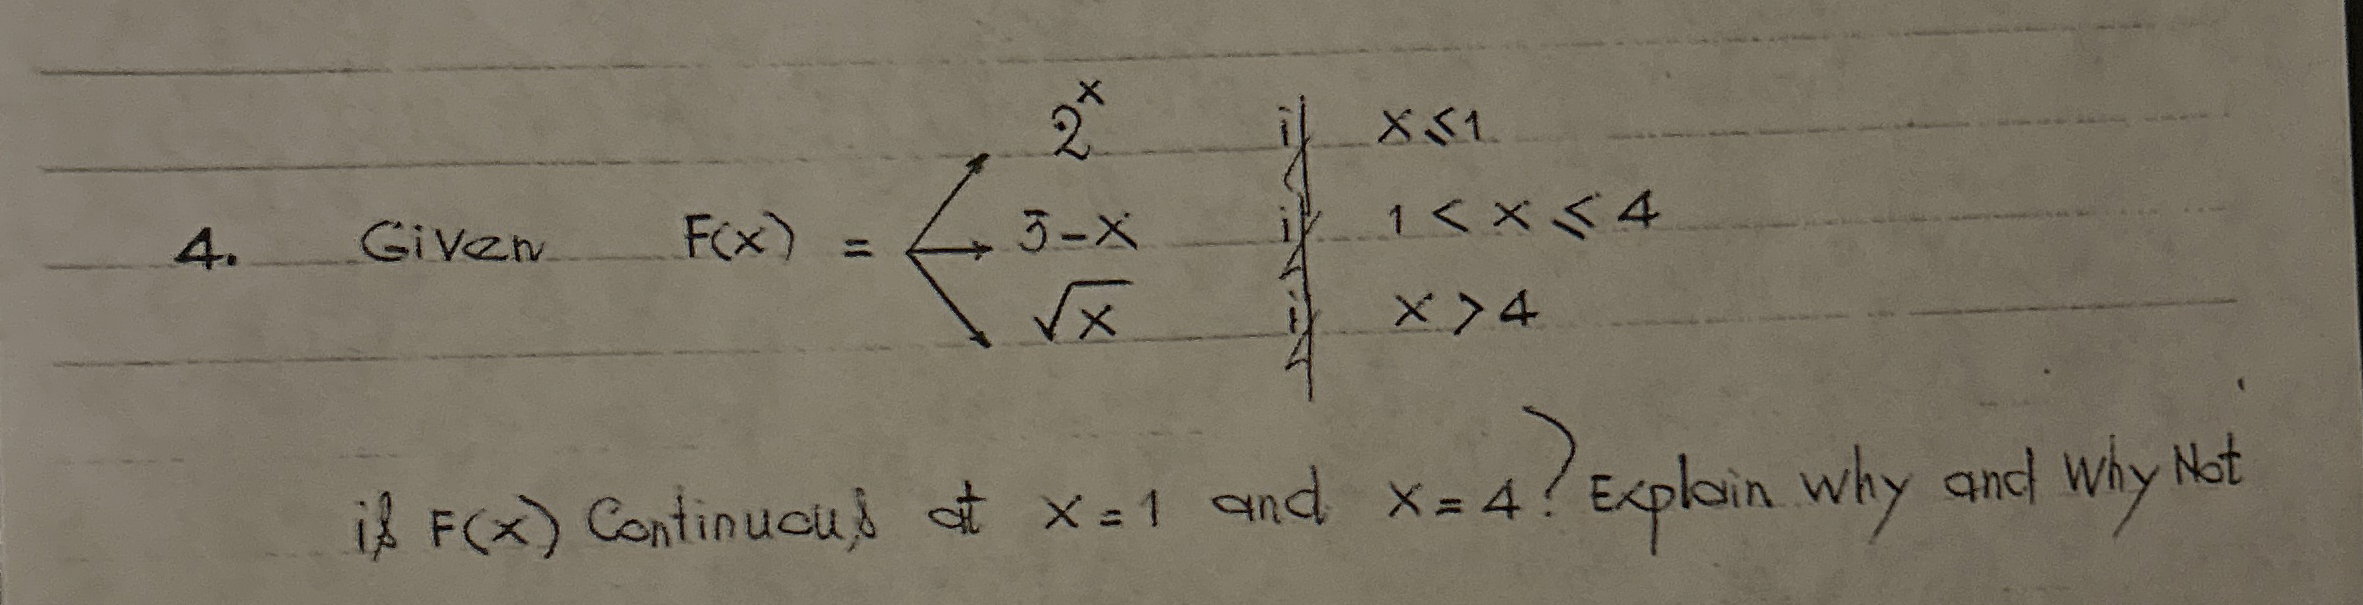 2ˣ if x ≤ 1
4. Given F(x) = 3-x if 1 < x ≤ 4
√x if x > 4
is F(x) Continuous at x = 1 and x = 4? Explain why and Why Not